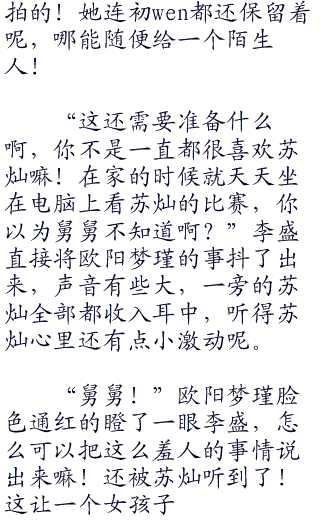 拍的！她连初wen都还保留着
呢，哪能随便给一个陌生
人！
“这还需要准备什么
啊，你不是一直都很喜欢苏
灿嘛！在家的时候就天天坐
在电脑上看苏灿的比赛，你
以为舅舅不知道啊？”李盛
直接将欧阳梦瑾的事抖了出
来，声音有些大，一旁的苏
灿全部都收入耳中，听得苏
灿心里还有点小激动呢。
“舅舅！”欧阳梦瑾脸
色通红的瞪了一眼李盛，怎
么可以把这么羞人的事情说
出来嘛！还被苏灿听到了！
这让一个女孩子